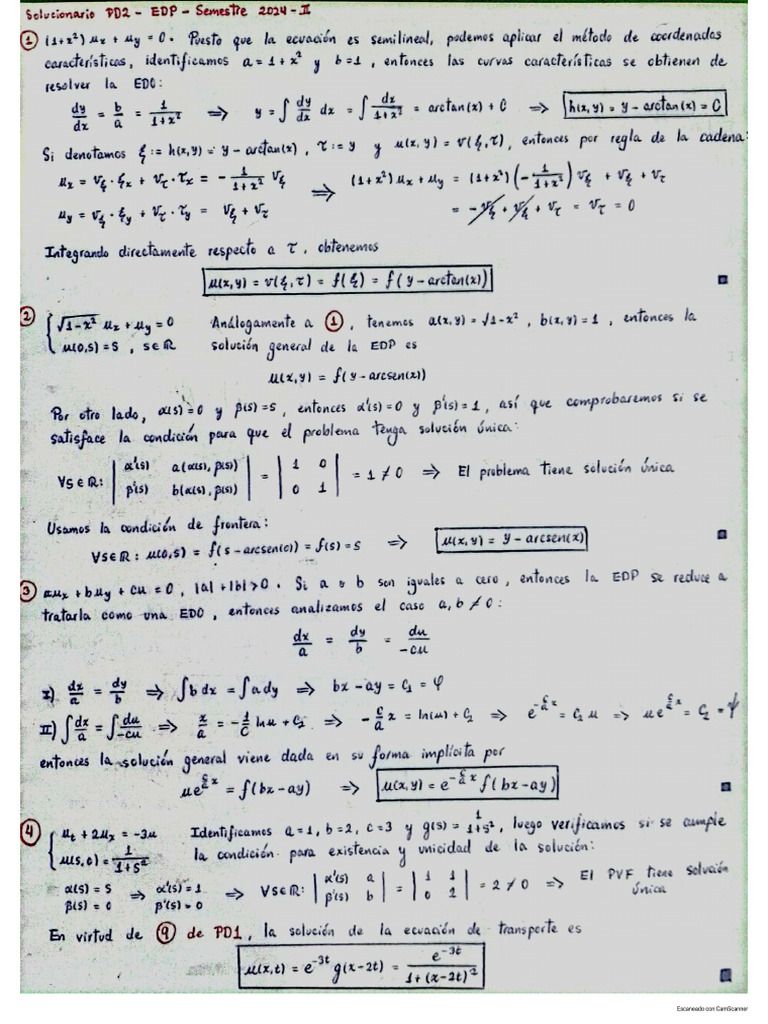 Solucionario PD2 - EDP - Semestre 2024-II
① (1+x²) u_x + u_y = 0. Puesto que la ecuación es semilineal, podemos aplicar el método de coordenadas
características, identificamos a = 1+x² y b = 1, entonces las curvas características se obtienen de
resolver la EDO:
dy/dx = b/a = 1/(1+x²) ⇒ y = ∫ dy/dx dx = ∫ dx/(1+x²) = arctan(x) + C ⇒ h(x,y) = y - arctan(x) = C
Si denotamos ξ := h(x,y) = y - arctan(x), τ := y y u(x,y) = v(ξ,τ), entonces por regla de la cadena:
u_x = v_ξ · ξ_x + v_τ · τ_x = - 1/(1+x²) v_ξ
u_y = v_ξ · ξ_y + v_τ · τ_y = v_ξ + v_τ
⇒ (1+x²) u_x + u_y = (1+x²)(- 1/(1+x²)) v_ξ + v_ξ + v_τ
= -v_ξ + v_ξ + v_τ = v_τ = 0
Integrando directamente respecto a τ, obtenemos
u(x,y) = v(ξ,τ) = f(ξ) = f(y - arctan(x))
② { √(1-x²) u_x + u_y = 0 Análogamente a ①, tenemos a(x,y) = √(1-x²), b(x,y) = 1, entonces la
u(0,s) = s, s∈ℝ solución general de la EDP es
u(x,y) = f(y - arcsen(x))
Por otro lado, α(s) = 0 y β(s) = s, entonces α'(s) = 0 y β'(s) = 1, así que comprobaremos si se
satisface la condición para que el problema tenga solución única:
∀s∈ℝ: | α'(s) a(α(s), β(s)) ; β'(s) b(α(s), β(s)) | = | 1 0 ; 0 1 | = 1 ≠ 0 ⇒ El problema tiene solución única
Usamos la condición de frontera:
∀s∈ℝ: u(0,s) = f(s - arcsen(0)) = f(s) = s ⇒ u(x,y) = y - arcsen(x)
③ au_x + bu_y + cu = 0, |a| + |b| > 0. Si a o b son iguales a cero, entonces la EDP se reduce a
tratarla como una EDO, entonces analizamos el caso a, b ≠ 0:
dx/a = dy/b = du/-cu
I) dx/a = dy/b ⇒ ∫b dx = ∫a dy ⇒ bx - ay = C₁ = φ
II) ∫dx/a = ∫du/-cu ⇒ x/a = -1/c ln u + C₂ ⇒ -c/a x = ln(u) + C₂ ⇒ e^(-c/a x) = C₂ u ⇒ u e^(c/a x) = C₂ = ψ
entonces la solución general viene dada en su forma implícita por
u e^(c/a x) = f(bx - ay) ⇒ u(x,y) = e^(-c/a x) f(bx - ay)
④ { u_t + 2u_x = -3u Identificamos a = 1, b = 2, c = 3 y g(s) = 1/(1+s²), luego verificamos si se cumple
u(s,0) = 1/(1+s²) la condición para existencia y unicidad de la solución:
α(s) = s α'(s) = 1
β(s) = 0 ⇒ β'(s) = 0 ⇒ ∀s∈ℝ: | α'(s) a ; β'(s) b | = | 1 1 ; 0 2 | = 2 ≠ 0 ⇒ El PVF tiene solución
única
En virtud de ⑨ de PD1, la solución de la ecuación de transporte es
u(x,t) = e^(-3t) g(x-2t) = e^(-3t)/(1+(x-2t)²)
Escaneado con CamScanner